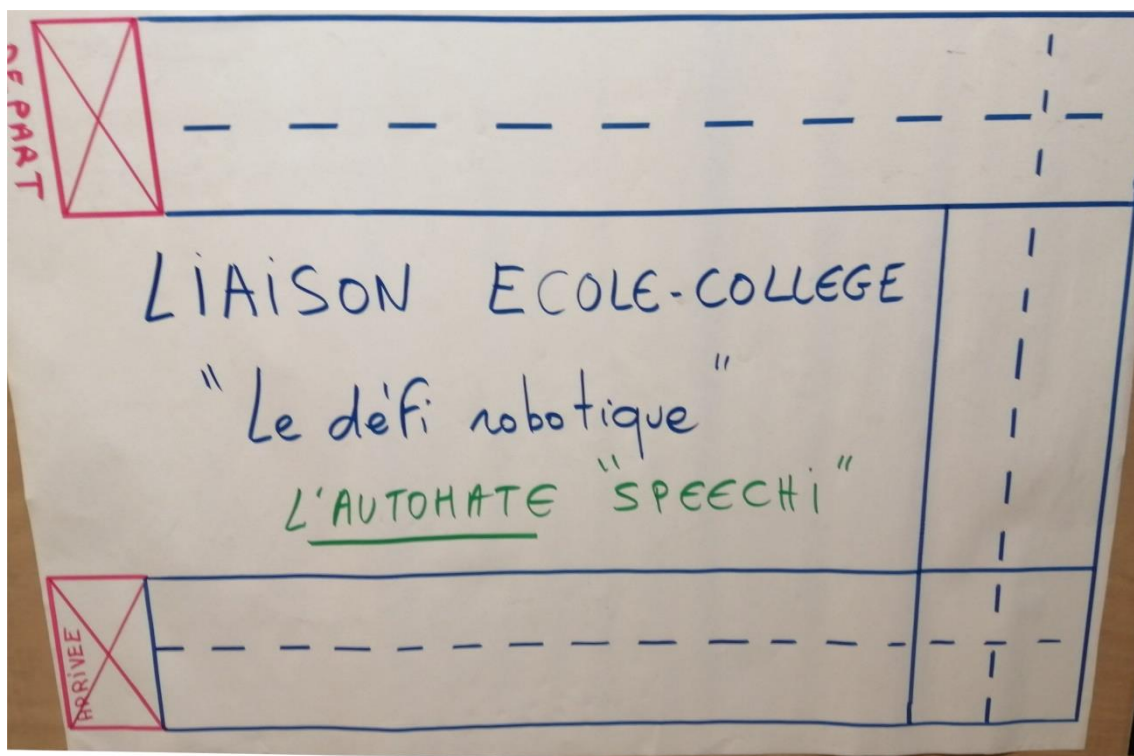 DEPART
LIAISON ECOLE-COLLEGE
"Le défi robotique"
L'AUTOMATE "SPEECHI"
ARRIVEE